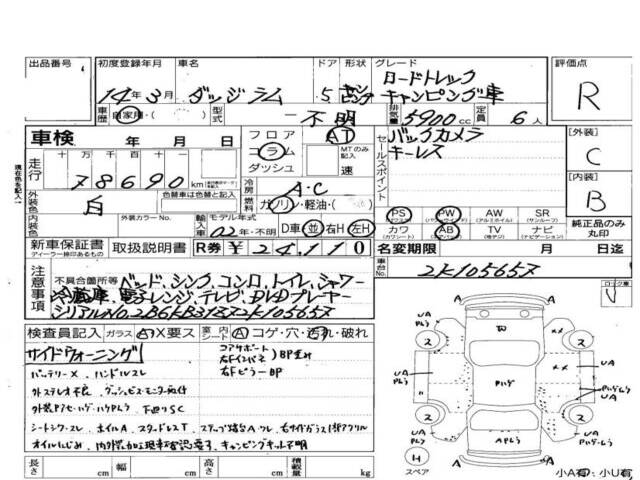 出品番号 初度登録年月 車名 ドア 形状 グレード 評価点
14年3月 ダッジ ラム 5 ロードトレック キャンピング車 R
車歴 自家用・( ) 型式 ー不明 排気量 5900cc 定員 6人
車検 年 月 日 フロア コラム ダッシュ AT MTのみ記入 速 セールスポイント バックカメラ [外装]
キーレス C
走行 十万 万 千 百 十 78690km
現在色を記入 [内装]
外装色 白 色替車は色替と記入 冷房 A・C B
燃料 ガソリン・軽油・( ) PS PW AW SR 純正品のみ丸印
内装色 外装カラーNo. 輸入車 モデル年式 02年・不明 D車 並 右H 左H カワ AB TV ナビ
新車保証書 取扱説明書 R券 ¥24,110 名変期限 月 日迄
ディーラー捺印あるもの
注意事項 不具合箇所等 ベッド、シンク、コンロ、トイレ、シャワー 車台No. 2K105657
冷蔵庫、電子レンジ、テレビ、DVDプレーヤー
シリアルNO.2B6KB31Z32K105657
検査員記入 ガラス A X要ス 室内 シート A コゲ・穴・汚れ・破れ
サイドウォーニング コアサポート
右Fインパネ BP歪み
バッテリーX、ハンドルスレ 右FピラーBP
外ステレオ不良、ダッシュビス・モニター取付
シートシワ・スレ、ホイルA、スタッドレスT
オイルにじみ、キャンピングキット不明
長さ cm 幅 cm 高さ cm 積載量 kg
スペア H 小A有 小U有